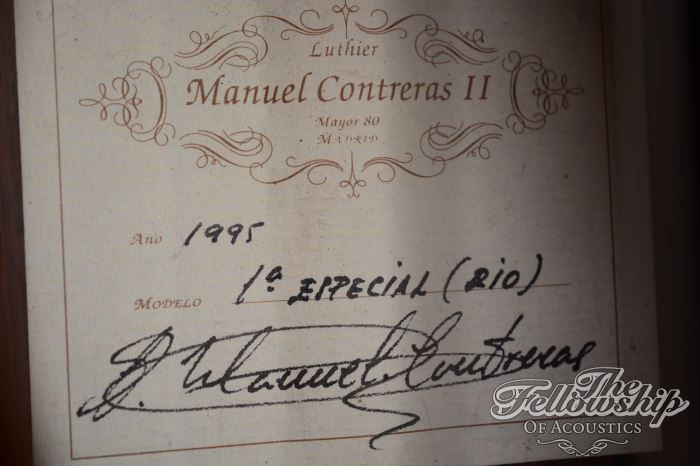 Luthier
Manuel Contreras II
Mayor 80
Madrid
Año 1995
Modelo 1ª ESPECIAL (RIO)
Manuel Contreras
The
Fellowship
Of Acoustics